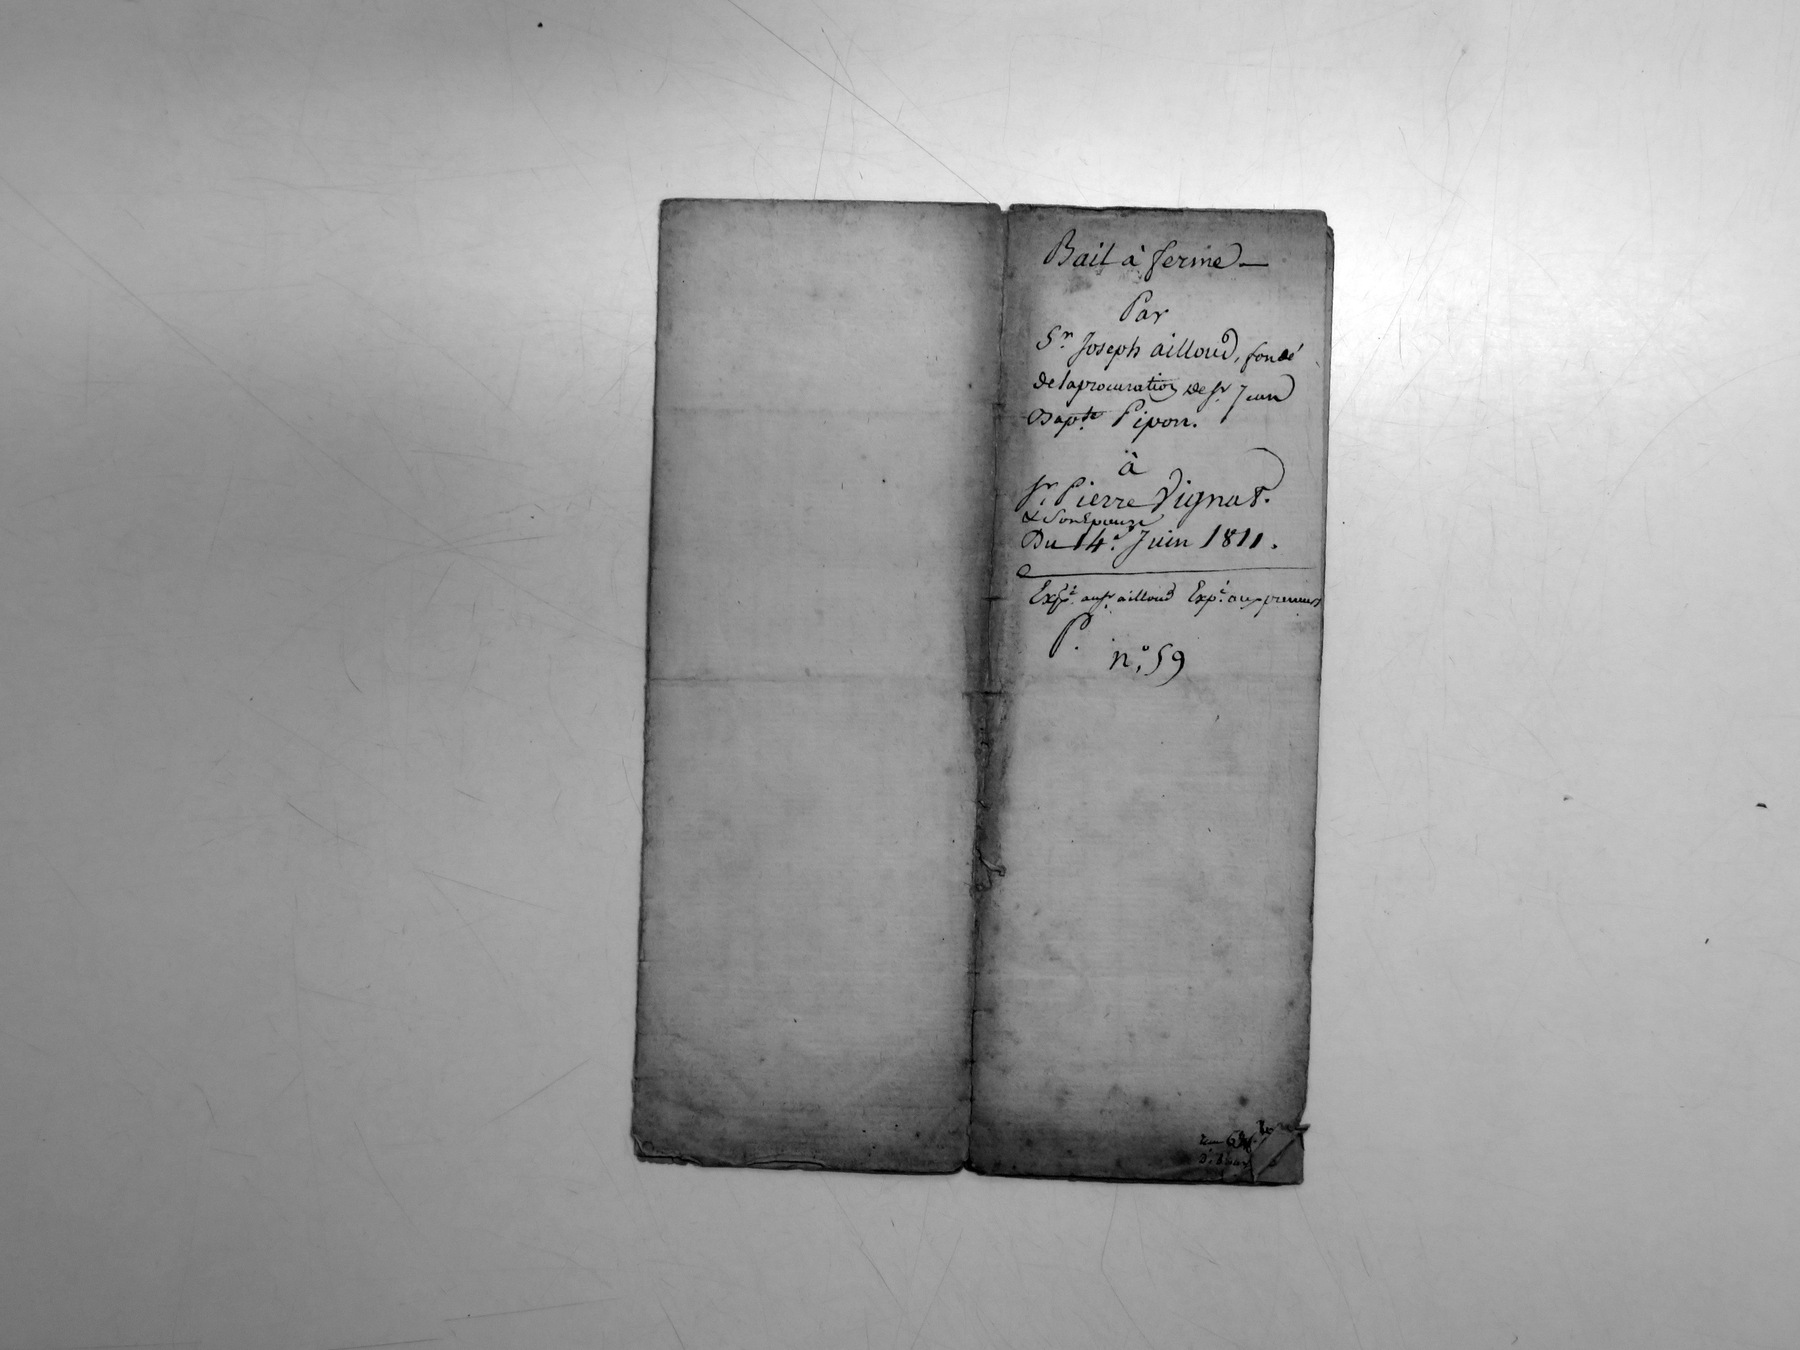 Bail à ferme —
Par
Sr. Joseph ailloud, fondé
de la procuration de Sr. Jean
Bapte. Pipon.
à
Sr. Pierre Vignat.
& son Epouse
Du 14e. Juin 1811.
Expé. au Sr. ailloud Expé. au preneur
P.
n.° 59